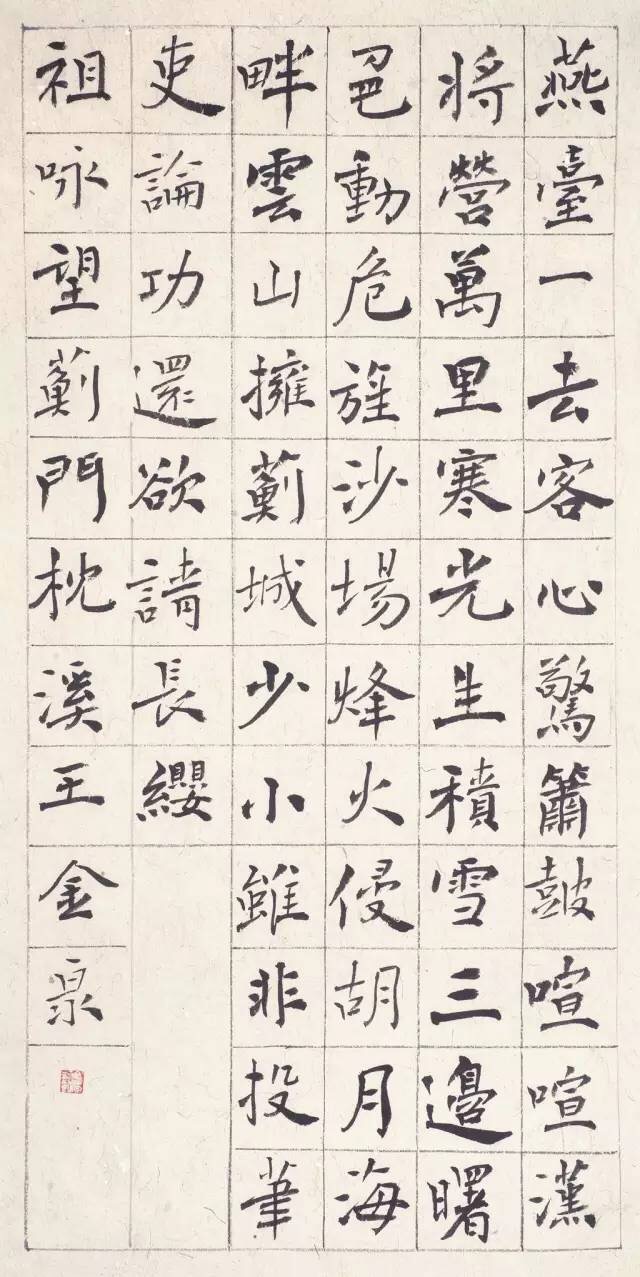 燕臺一去客心驚簫鼓喧喧漢
將營萬里寒光生積雪三邊曙
色動危旌沙場烽火侵胡月海
畔雲山擁薊城少小雖非投筆
吏論功還欲請長纓
祖咏望薊門枕溪王金泉